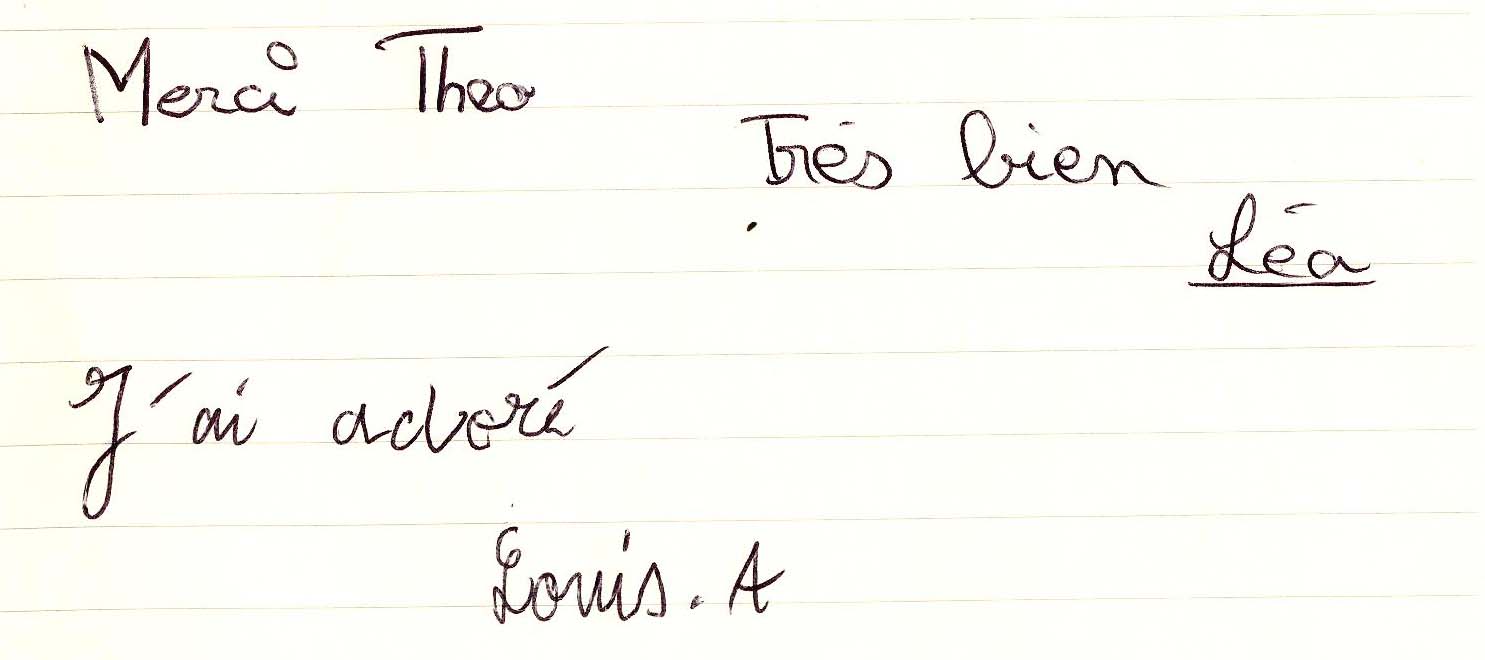 Merci Theo
Très bien
Léa
J'ai adoré
Louis. A